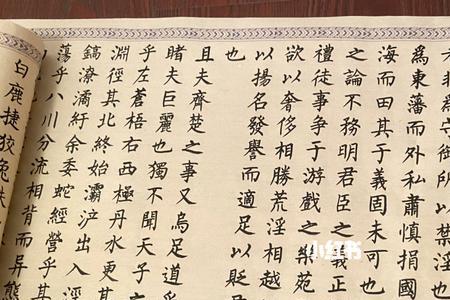 為守御所以禁淫也
為東藩而外私肅慎捐國
海而田其于義固未可也
之論不務明君臣之義正
禮徒事爭于游戲之樂苑
欲以奢侈相勝荒淫相越
以揚名發譽而適足以貶
也
且夫齊楚之事又烏足道乎
睹夫巨麗也獨不聞天子之
乎左蒼梧右西極丹水更其
淵徑其北終始灞滻出入涇
鎬潦潏紆余委蛇經營乎其
蕩乎八川分流相背而异態
白鹿捷狡兔
小红书